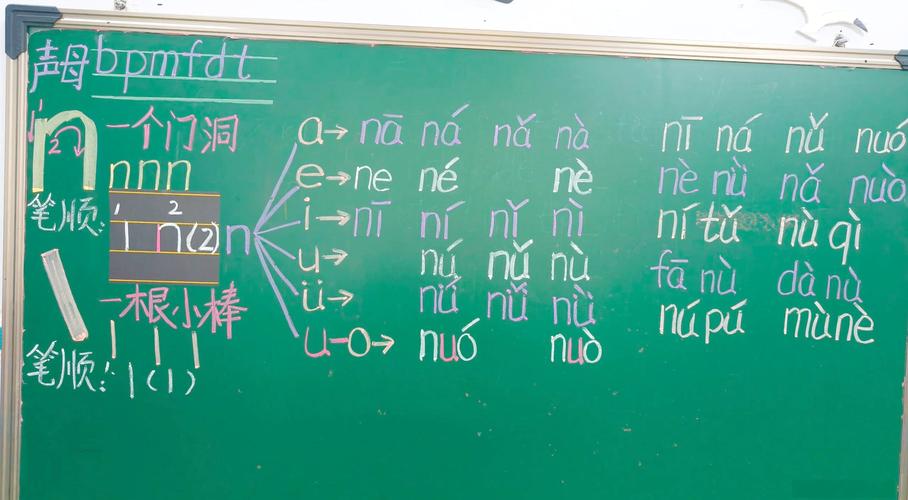 声母 bpmfdt
n 1 2 一个门洞
nnn
笔顺: 1 2
ln(2)
一根小棒
l l l
笔顺: l(1)
n
a→ nā ná nǎ nà
e→ ne né nè
i→ nī ní nǐ nì
u→ nú nǔ nù
ü→ nǘ nǚ nǜ
u-o→ nuó nuò
nī ná nǔ nuó
nè nǜ nǎ nuò
ní tǔ nù qì
fā nù dà nù
nú pú mù nè